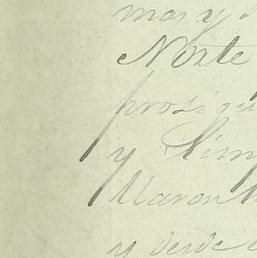 mas y
Norte
prosigu
y lim
Maron
y desde